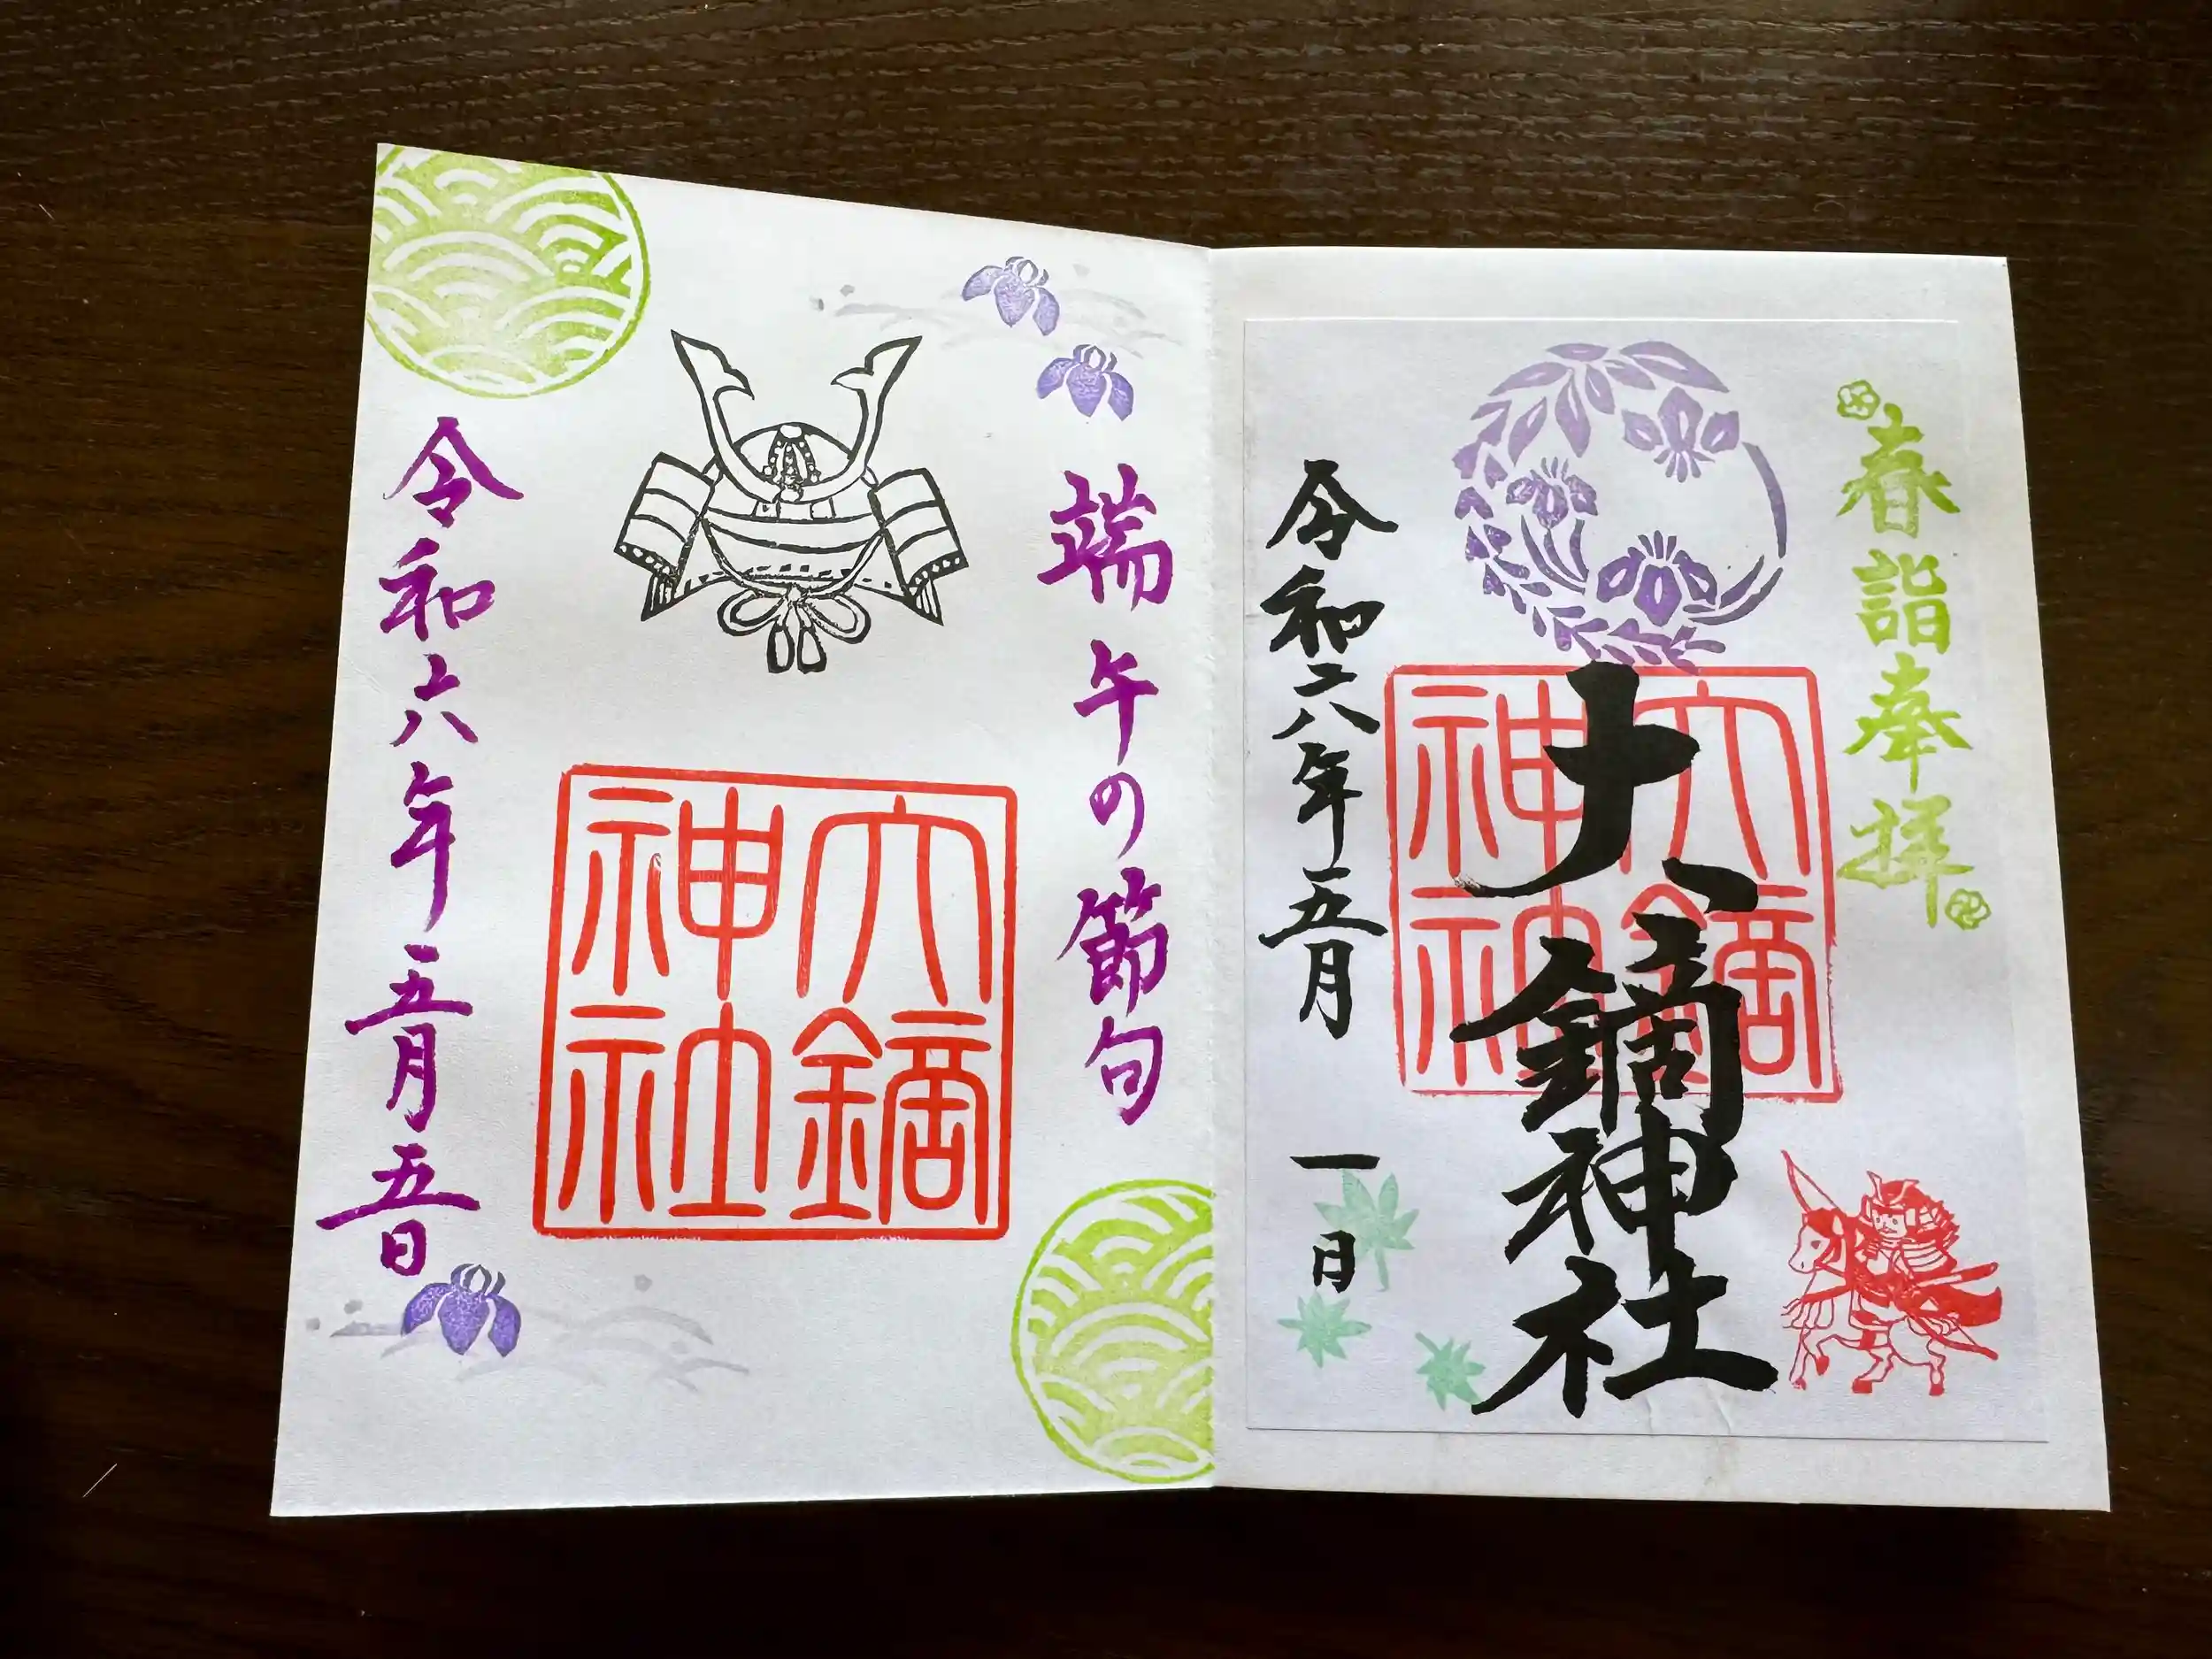 春詣奉拝
大鏑神社
令和六年五月一日
端午の節句
大鏑
神社
令和六年五月五日